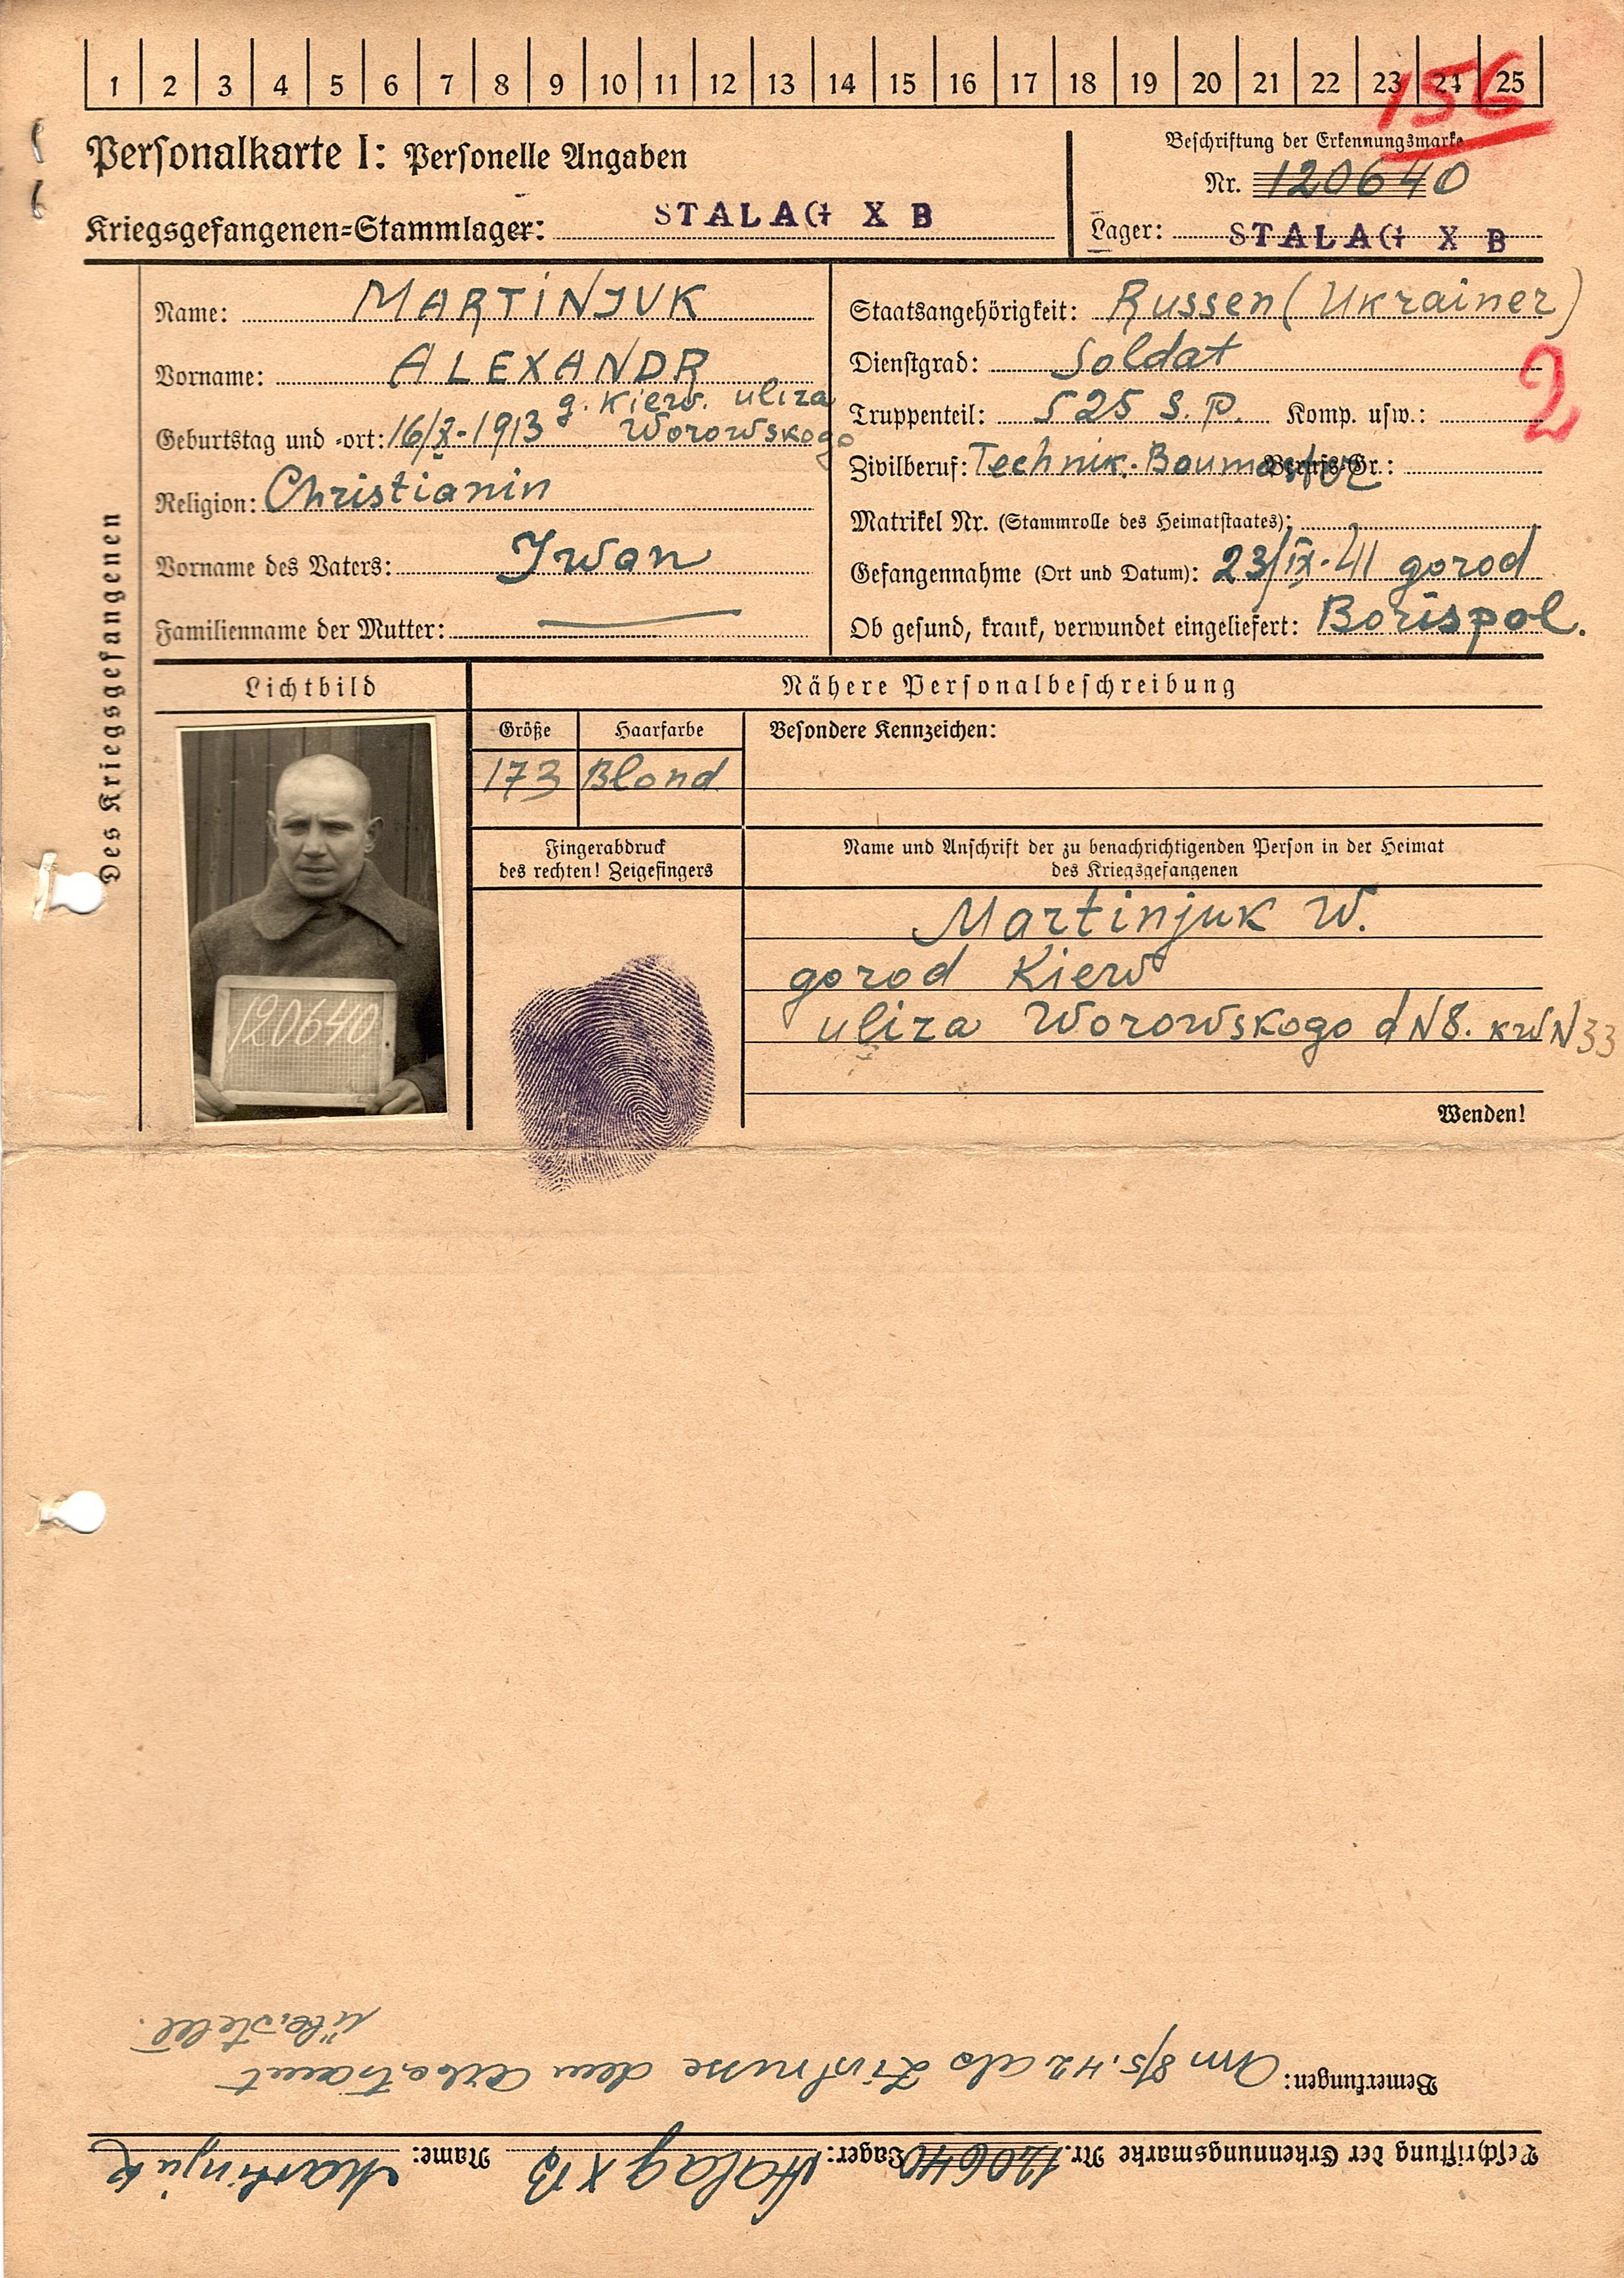 1 2 3 4 5 6 7 8 9 10 11 12 13 14 15 16 17 18 19 20 21 22 23 24 25
156
Personalkarte I: Personelle Angaben
Kriegsgefangenen-Stammlager: STALAG X B
Beschriftung der Erkennungsmarke
Nr. 120640
Lager: STALAG X B
Des Kriegsgefangenen
Name: MARTINJUK
Vorname: ALEXANDR
g. Kiew. uliza
Geburtstag und -ort: 16/X-1913 Worowskogo
Religion: Christianin
Vorname des Vaters: Iwan
Familienname der Mutter:
Staatsangehörigkeit: Russen (Ukrainer)
Dienstgrad: Soldat
2
Truppenteil: 525 S.P. Komp. usw.:
Zivilberuf: Technik. Baumaster Berufs-Gr.:
Matrikel Nr. (Stammrolle des Heimatstaates):
Gefangennahme (Ort und Datum): 23/IX-41 gorod
Ob gesund, krank, verwundet eingeliefert: Borispol.
Lichtbild
Nähere Personalbeschreibung
Größe
Haarfarbe
Besondere Kennzeichen:
173
Blond
120640
Fingerabdruck
des rechten! Zeigefingers
Name und Anschrift der zu benachrichtigenden Person in der Heimat
des Kriegsgefangenen
Martinjuk W.
gorod Kiew
uliza Worowskogo d N8. kw N 33
Wenden!
Beschriftung der Erkennungsmarke Nr. 120640 Lager: Stalag X B Name: Martinjuk
Bemerkungen: Am 8/5.42 als Zivilrusse dem